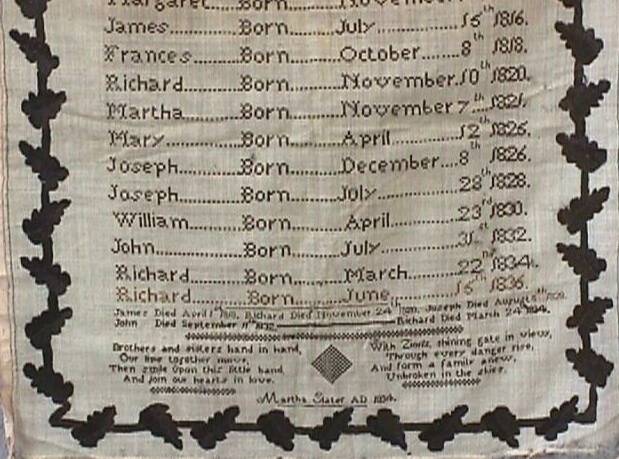 Margaret....Born........November
James..........Born.......July.............15th 1816.
Frances.......Born.......October........8th 1818.
Richard.......Born.......November.10th 1820.
Martha........Born.......November 7th 1821.
Mary...........Born.......April............12th 1825.
Joseph........Born.......December....8th 1826.
Joseph........Born.......July.............28th 1828.
William........Born.......April............23rd 1830.
John............Born.......July.............31st 1832.
Richard.......Born.......March..........22nd 1834.
Richard.......Born.......June............15th 1836.
James Died April Richard Died November 24th Joseph Died August
John Died September Richard Died March 24th 1834.
Brothers and sisters hand in hand,
Our line together move,
Then smile upon this little band
And join our hearts in love.
With Zion's shining gate in view,
Through every danger rise,
And form a family anew,
Unbroken in the skies.
Martha Slater AD